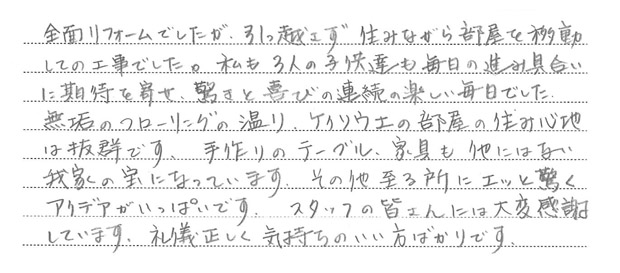 全面リフォームでしたが、引っ越さず 住みながら部屋を移動
しての工事でした。私も3人の子供達も毎日の進み具合い
に期待を寄せ、驚きと喜びの連続の楽しい毎日でした.
無垢のフローリングの温り、ケイソウ土の部屋の住み心地
は抜群です、手作りのテーブル、家具も他にはない
我家の宝になっています、その他至る所にエッと驚く
アイデアがいっぱいです、スタッフの皆さんには大変感謝
しています、礼儀正しく気持ちのいい方ばかりです、